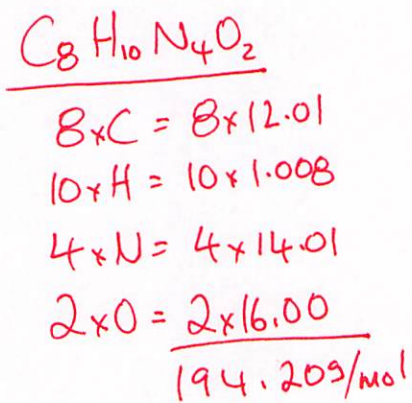 C₈H₁₀N₄O₂
8×C = 8×12.01
10×H = 10×1.008
4×N = 4×14.01
2×O = 2×16.00
194.20g/mol